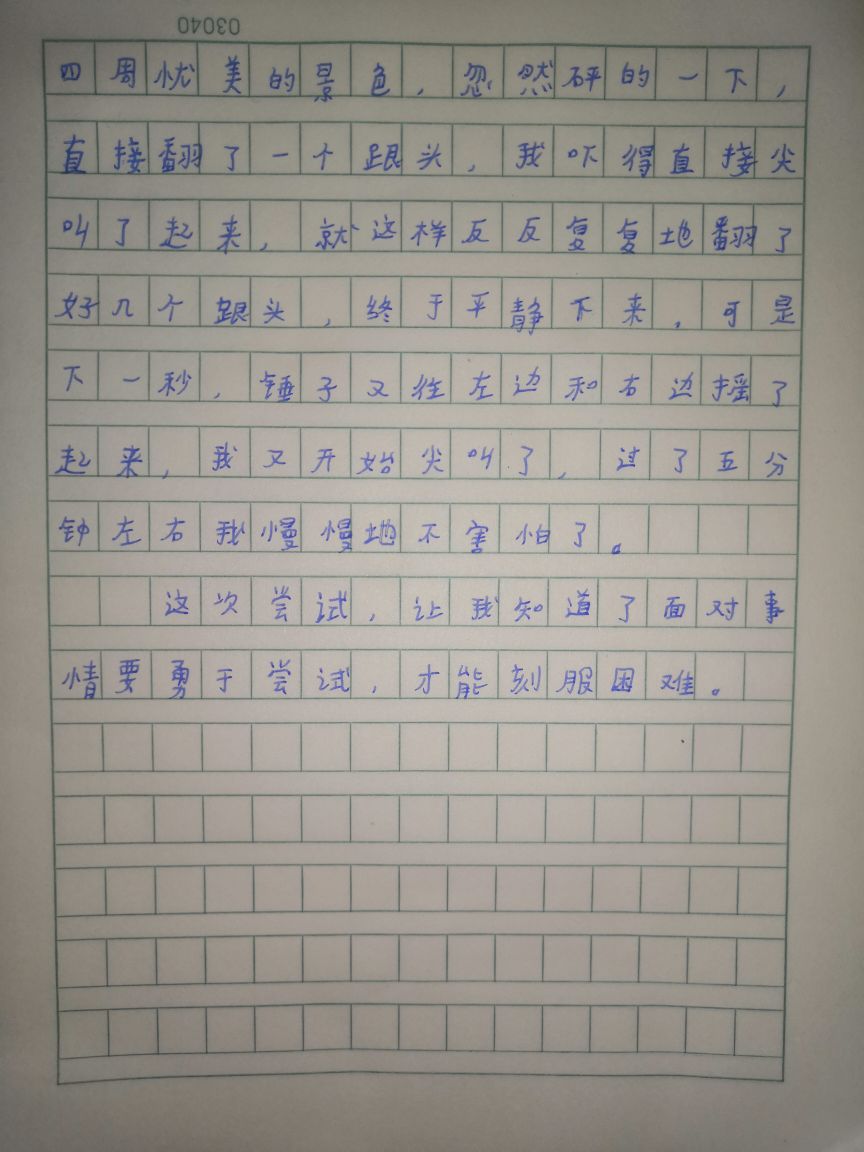 03040
四周忧美的景色，忽然砰的一下，
直接翻了一个跟头，我吓得直接尖
叫了起来，就这样反反复复地翻了
好几个跟头，终于平静下来，可是
下一秒，锤子又往左边和右边摇了
起来，我又开始尖叫了，过了五分
钟左右我慢慢地不害怕了。
这次尝试，让我知道了面对事
情要勇于尝试，才能刻服困难。